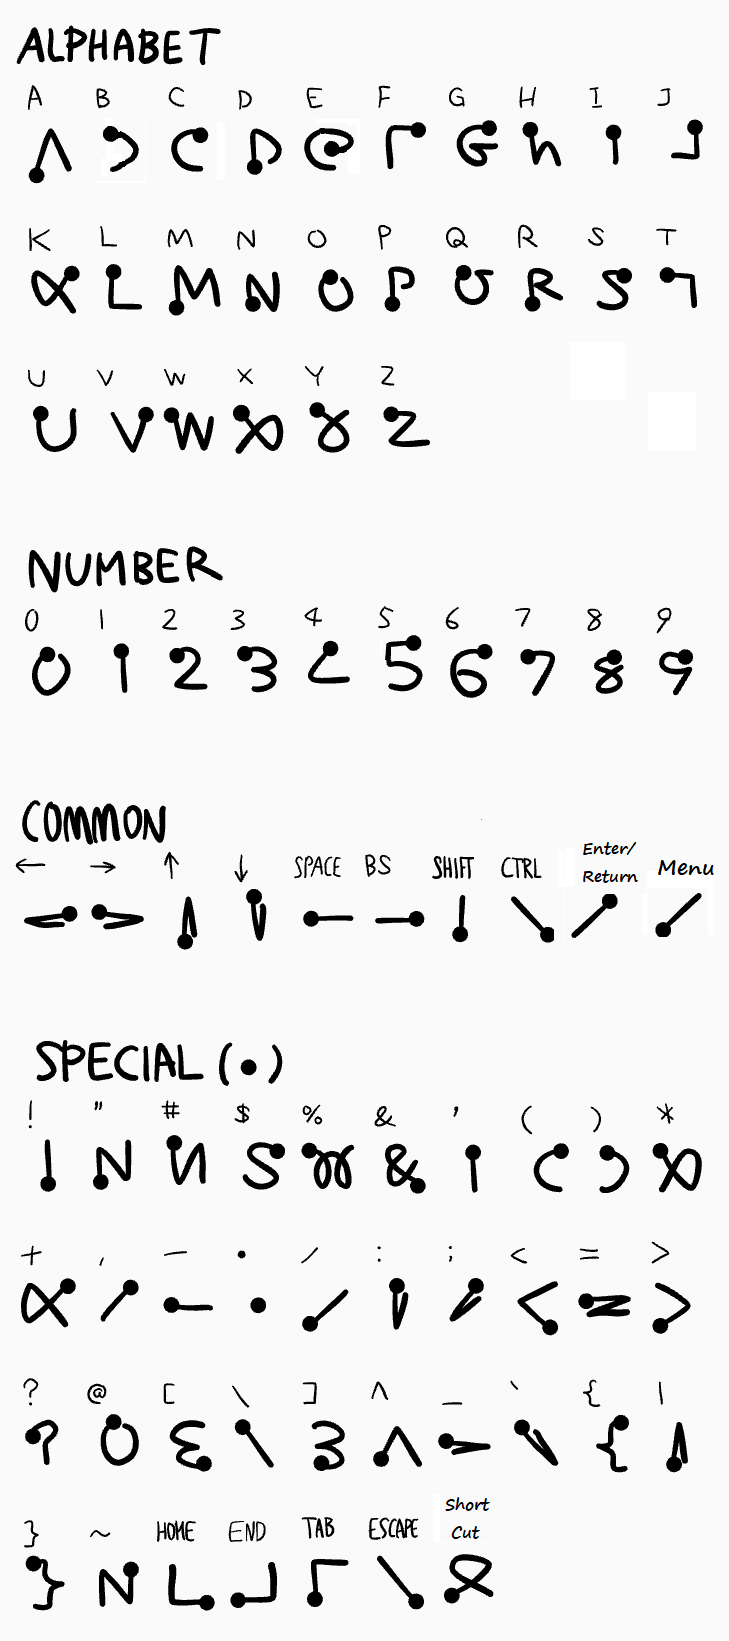 ALPHABET
A B C D E F G H I J
K L M N O P Q R S T
U V W X Y Z
NUMBER
0 1 2 3 4 5 6 7 8 9
COMMON
← → ↑ ↓ SPACE BS SHIFT CTRL Enter/ Return Menu
SPECIAL (•)
! " # $ % & ' ( ) *
+ , — • / : ; < = >
? @ [ \ ] ^ _ ` { |
} ~ HOME END TAB ESCAPE Short Cut